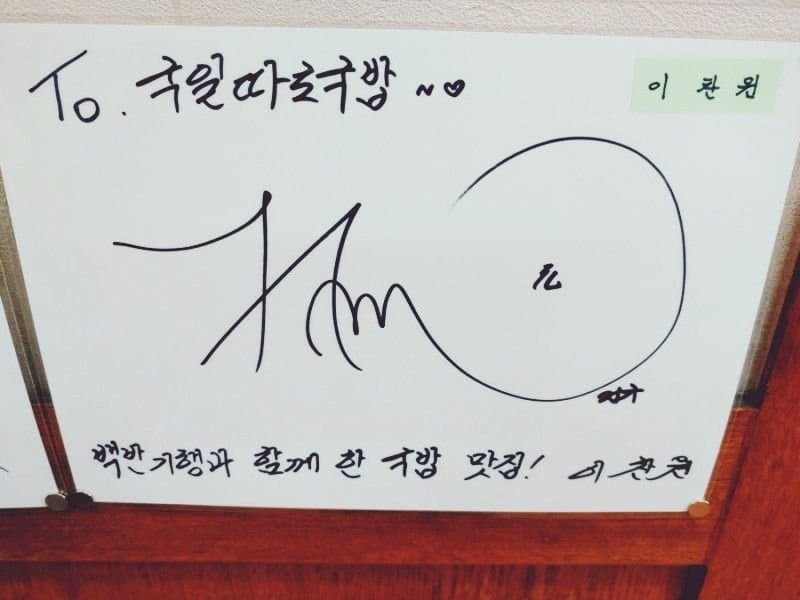 To. 국일따로국밥 ~♡
이 찬 원
백반기행과 함께 한 국밥 맛집! 이찬원